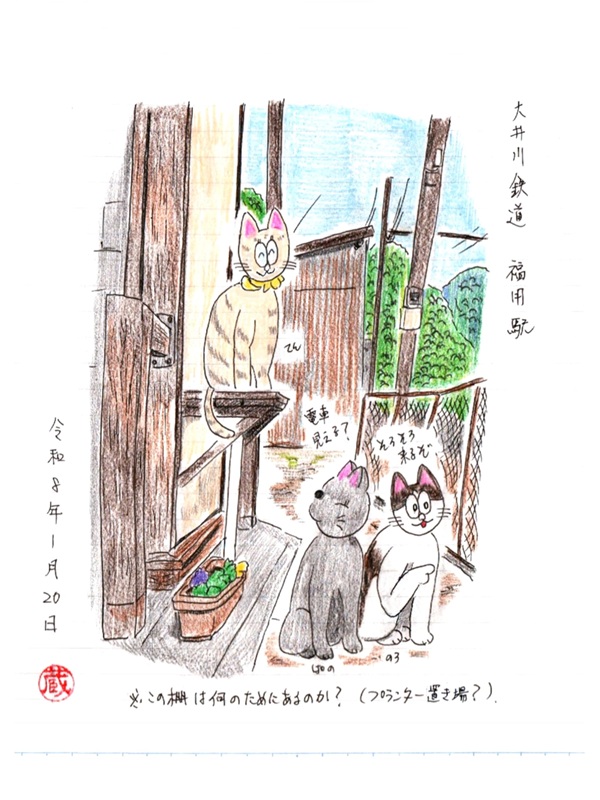 大井川鉄道 福用駅
てん
電車
見える?
そろそろ
来るぞ、
はの
のろ
令和8年1月20日
蔵
※この棚は何のためにあるのか?(プランター置き場?).